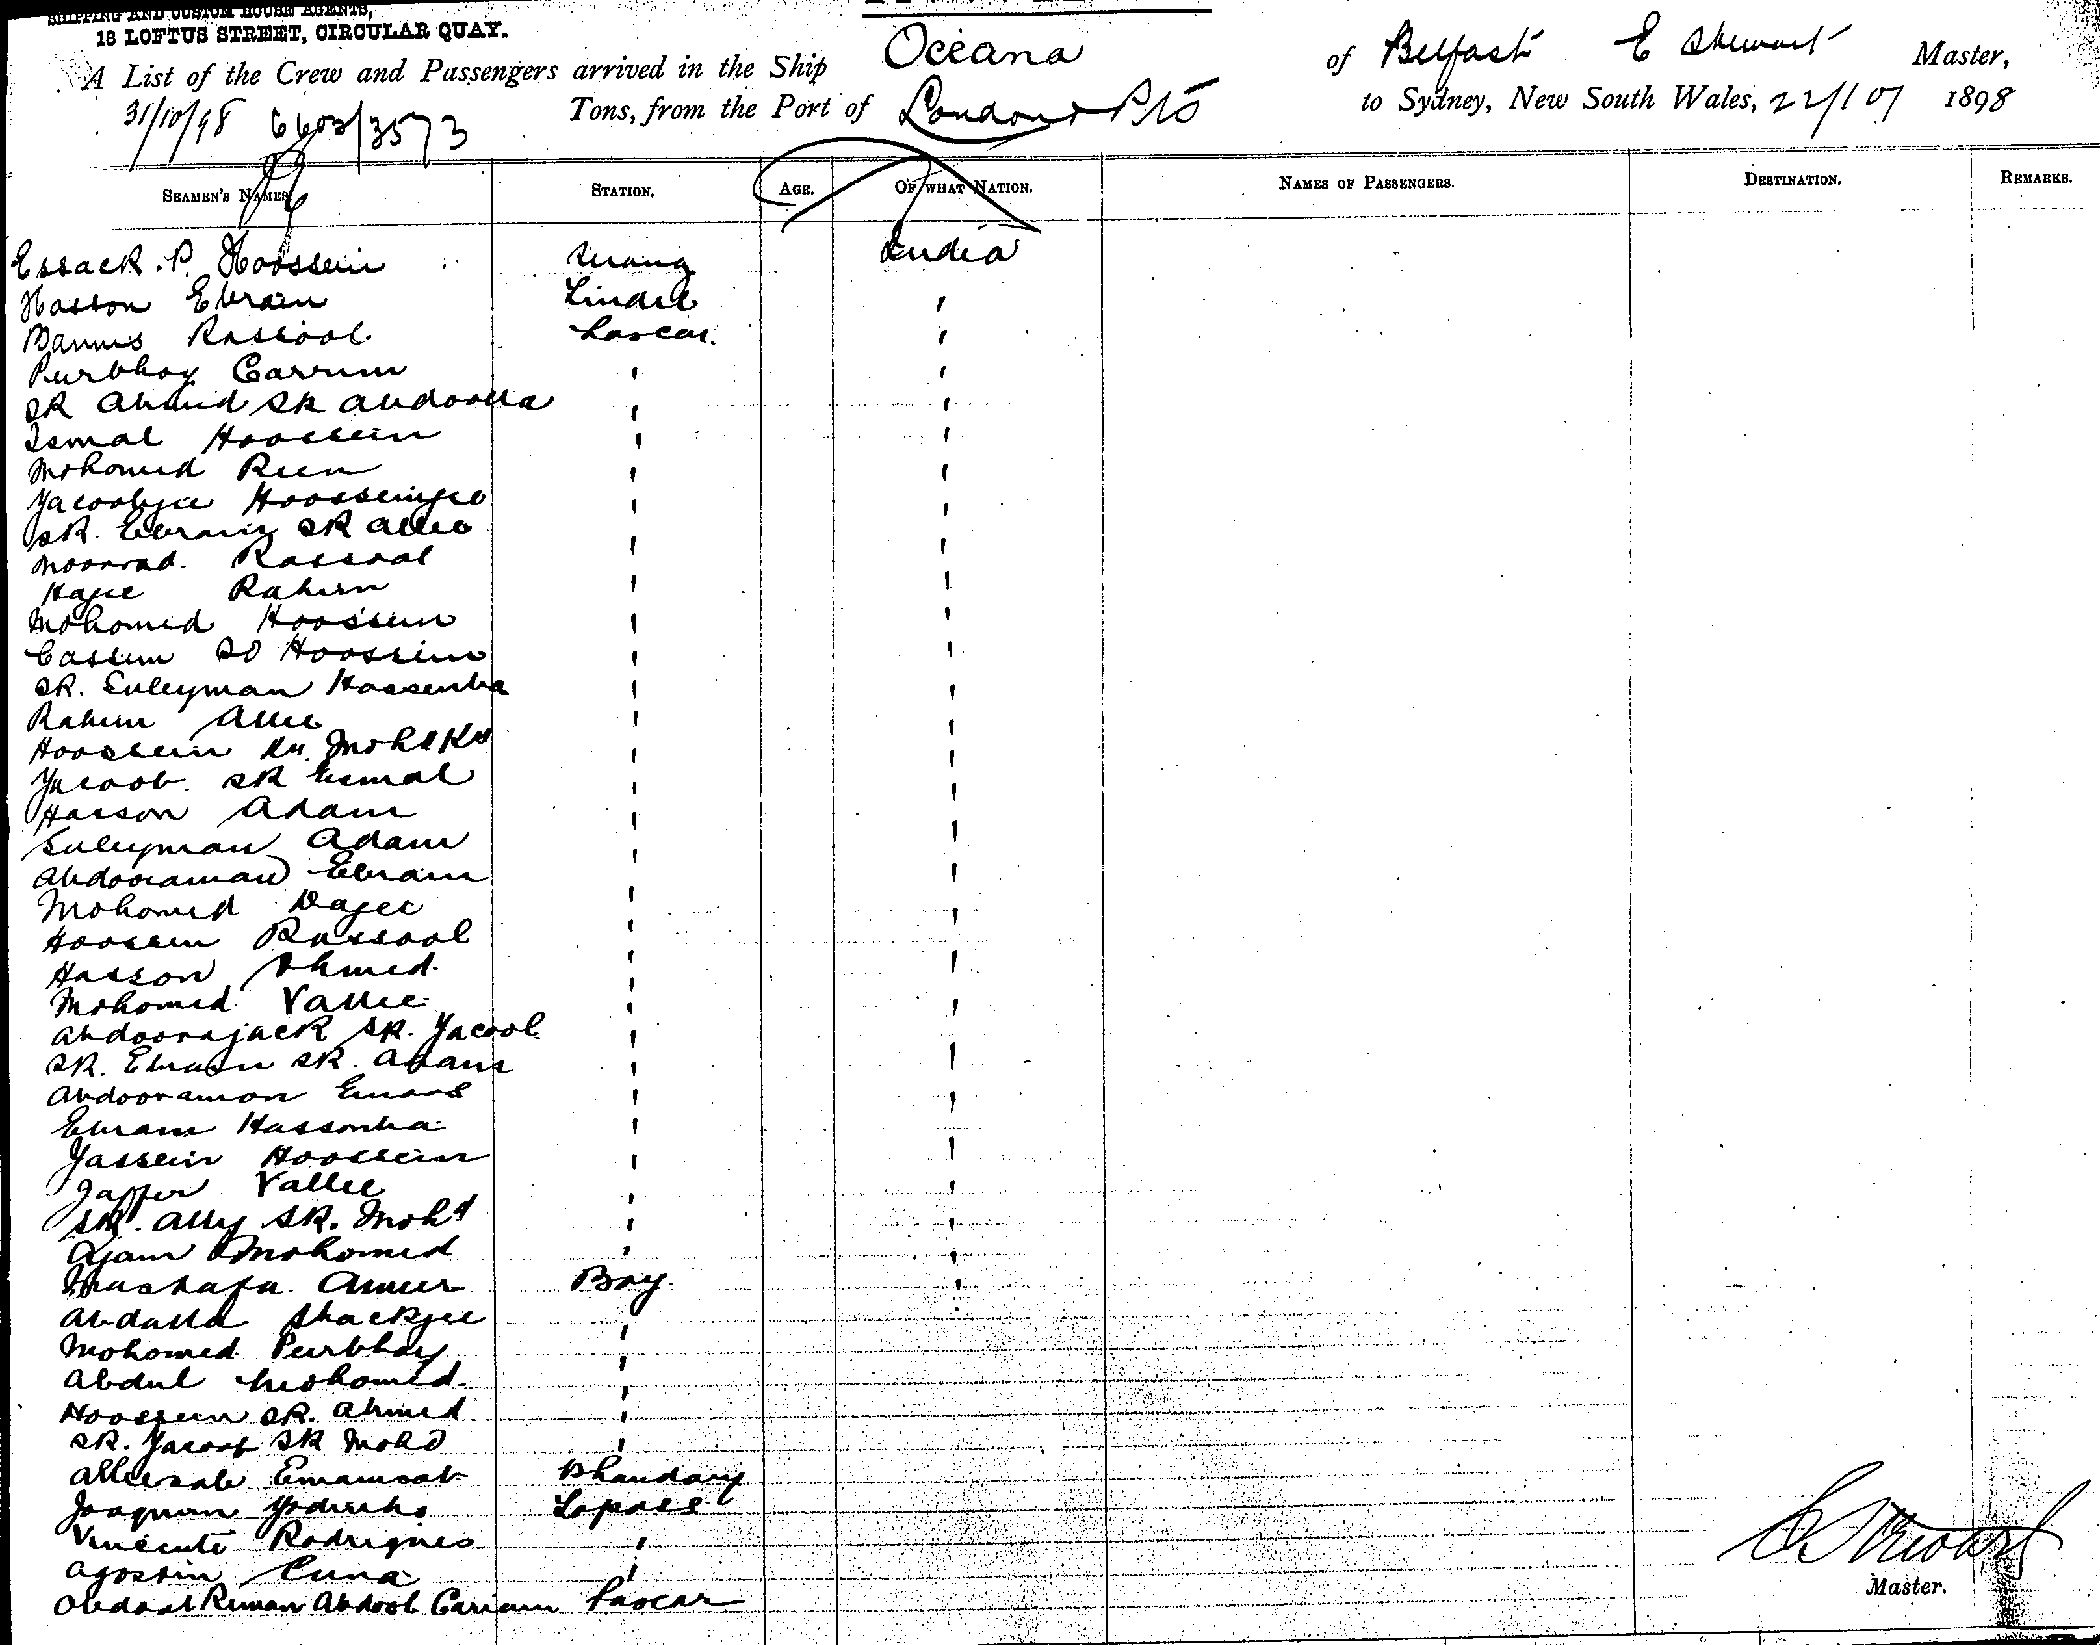 SHIPPING AND CUSTOM HOUSE AGENTS,
18 LOFTUS STREET, CIRCULAR QUAY.
A List of the Crew and Passengers arrived in the Ship Oceana of Belfast E Stewart Master,
31/10/98 6603/3573 Tons, from the Port of London to Sydney, New South Wales, 1898
SEAMEN'S NAMES STATION. AGE. OF WHAT NATION. NAMES OF PASSENGERS. DESTINATION. REMARKS.
Essack. P. Hoossein Serang India
Hasson Ebram Tindel '
Rassool Lascar. '
Purbhoy Carrim ' '
SR Ahmed SR Abdoolla ' '
Ismal Hoossein ' '
Mohomed ' '
Yacoobjee Hoosseinjee ' '
SR. Ebram SR Allie ' '
Moorad. Rassool ' '
Hajie Rahim ' '
Mohomed Hoossein ' '
Cassim SD Hoossein ' '
SR. Suleyman Hassenba ' '
Rahim Allie ' '
Hoossein ' '
Yacoob. SR Esmal ' '
Hasson Adam ' '
Suleyman Adam ' '
Abdooraman Ebram ' '
Mohomed Dajee ' '
Hoossein Rassool ' '
Hasson Ahmed. ' '
Mohomed Vallie ' '
Abdoorajack SR. Yacoob ' '
SR. Ebram SR. Adam ' '
Abdooramon ' '
Ebram Hassonba ' '
Yassein Hoossein ' '
Jaffer Vallie ' '
SR. Ally SR. Mohd ' '
Ajam Mohomed ' '
Mustafa. Ameer Boy. '
Abdulla Shackjee '
Mohomed Purbhoy '
Abdul Mohomed. '
Hoossein SR. Ahmed '
SR. Yacoob SR Mohd '
Alliesab Emamsab Bhandary
Joaquim
Vincente Rodrigues '
Agostin Cuna '
Abdool Riman Abdool Cariam Lascar
E Stewart
Master.